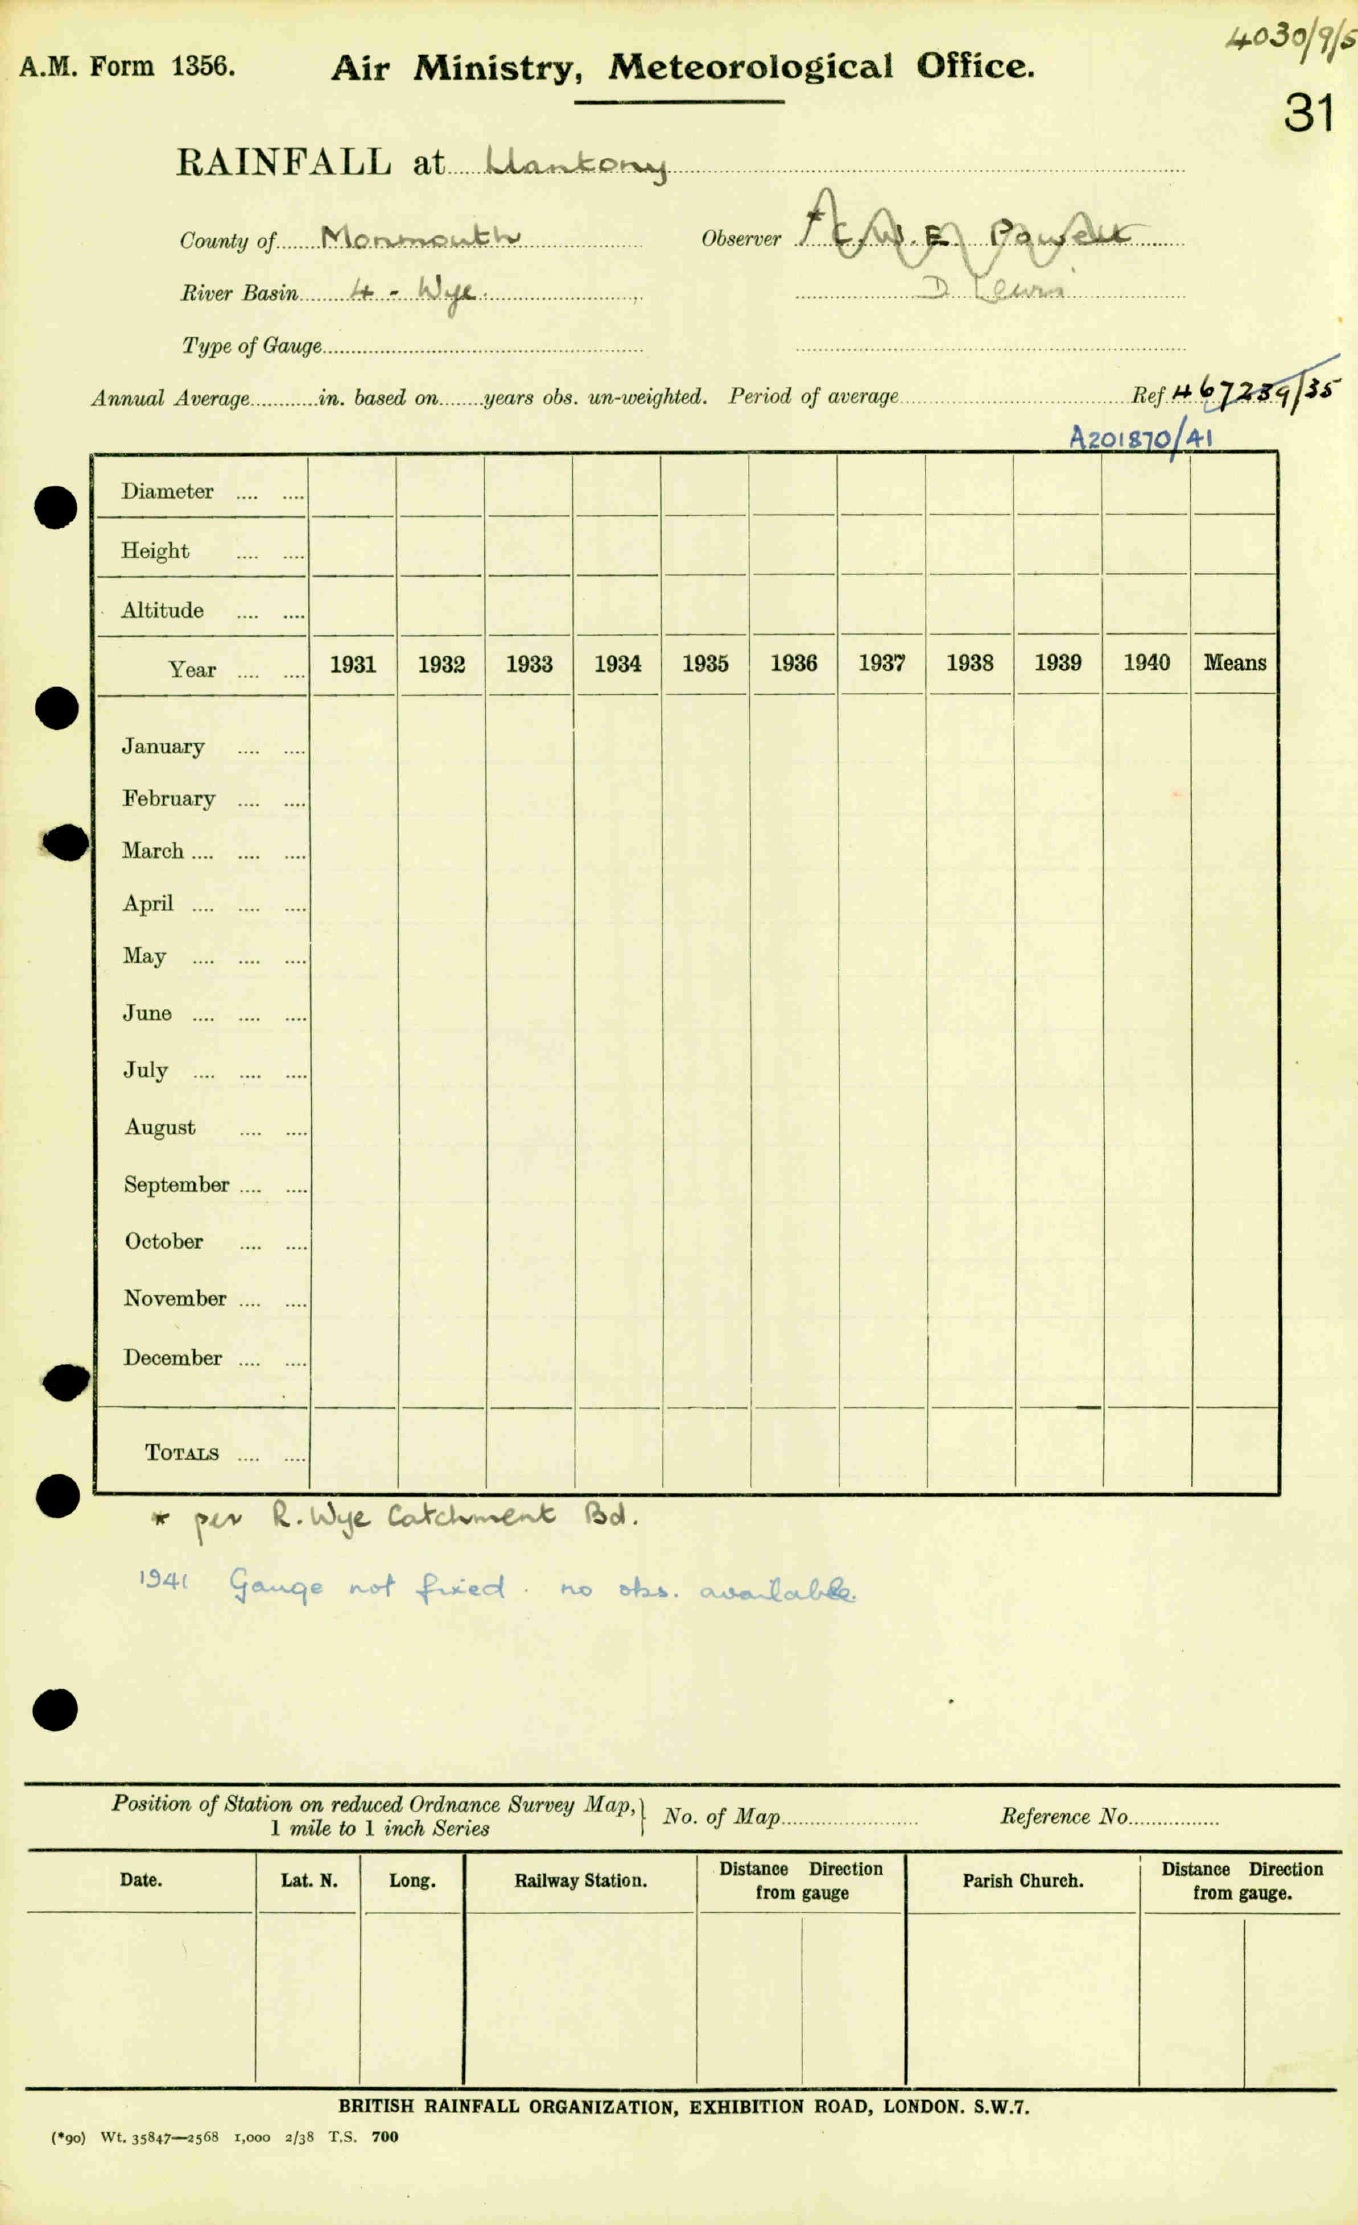 4030/9/5
A.M. Form 1356. Air Ministry, Meteorological Office.
31
RAINFALL at Llantony
County of Monmouth Observer * C.W.E. Powell
River Basin 4 - Wye. D. Lewis
Type of Gauge
Annual Average in. based on years obs. un-weighted. Period of average Ref 467239/35
A201870/41
Diameter .... ....
Height .... ....
Altitude .... ....
Year .... .... 1931 1932 1933 1934 1935 1936 1937 1938 1939 1940 Means
January .... ....
February .... ....
March .... .... ....
April .... .... ....
May .... .... ....
June .... .... ....
July .... .... ....
August .... ....
September .... ....
October .... ....
November .... ....
December .... ....
TOTALS .... ....
* per R. Wye Catchment Bd.
1941 Gauge not fixed. no obs. available.
Position of Station on reduced Ordnance Survey Map, } No. of Map Reference No.
1 mile to 1 inch Series
Date. Lat. N. Long. Railway Station. Distance Direction from gauge Parish Church. Distance Direction from gauge.
BRITISH RAINFALL ORGANIZATION, EXHIBITION ROAD, LONDON. S.W.7.
(*90) Wt. 35847—2568 1,000 2/38 T.S. 700